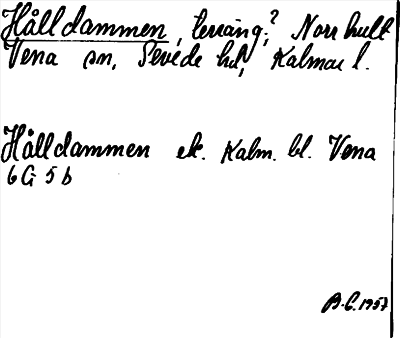 Hålldammen, terräng.? Norrhult
Vena sn, Sevede hd, Kalmar l.
Hålldammen ek. Kalm. bl. Vena
6G 5b
B.C. 1957